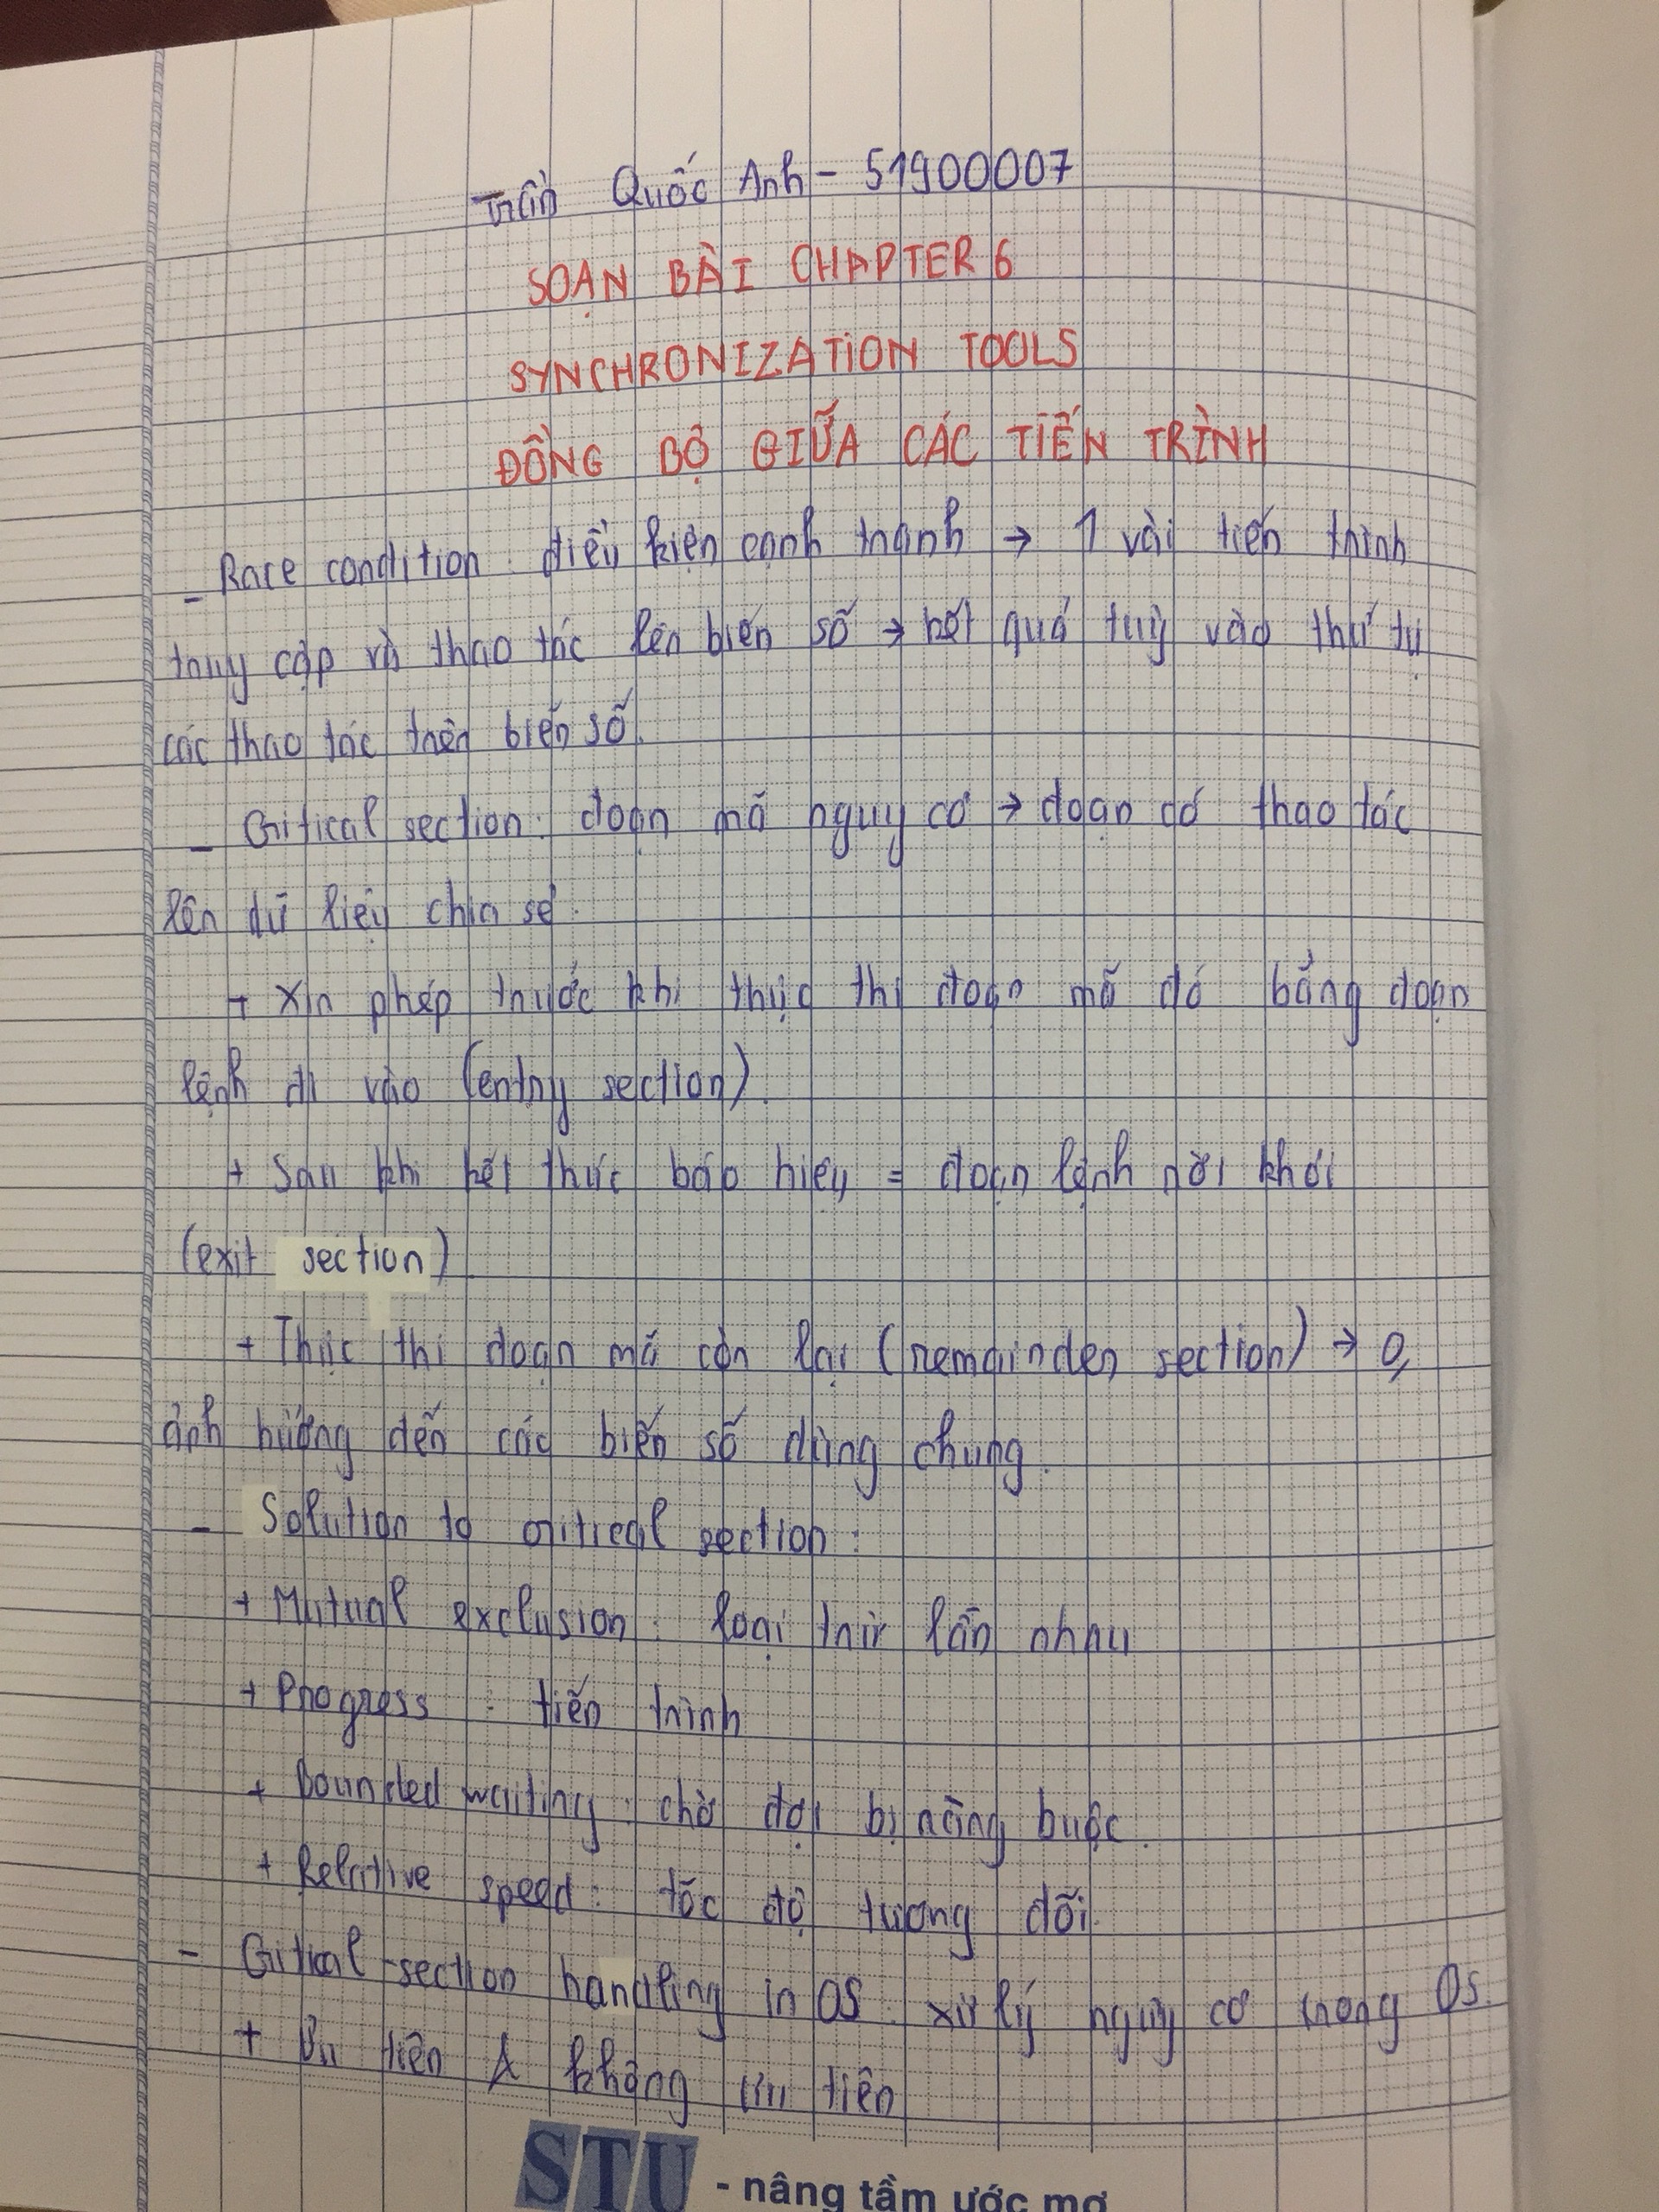 Trần Quốc Anh - 51900007
SOẠN BÀI CHAPTER 6
SYNCHRONIZATION TOOLS
ĐỒNG BỘ GIỮA CÁC TIẾN TRÌNH
- Race condition: điều kiện cạnh tranh → 1 vài tiến trình
truy cập và thao tác lên biến số → kết quả tuỳ vào thứ tự
các thao tác trên biến số.
- Critical section: đoạn mã nguy cơ → đoạn có thao tác
lên dữ liệu chia sẻ.
+ Xin phép trước khi thực thi đoạn mã đó bằng đoạn
lệnh đi vào (entry section).
+ Sau khi kết thúc báo hiệu = đoạn lệnh rời khỏi
(exit section).
+ Thực thi đoạn mã còn lại (remainder section) → 0,
ảnh hưởng đến các biến số dùng chung.
- Solution to critical section:
+ Mutual exclusion: loại trừ lẫn nhau
+ Progress: tiến trình
+ Bounded waiting: chờ đợi bị ràng buộc.
+ Relative speed: tốc độ tương đối.
- Critical-section handling in OS: xử lý nguy cơ trong OS.
+ Ưu tiên & không ưu tiên
STU - nâng tầm ước mơ